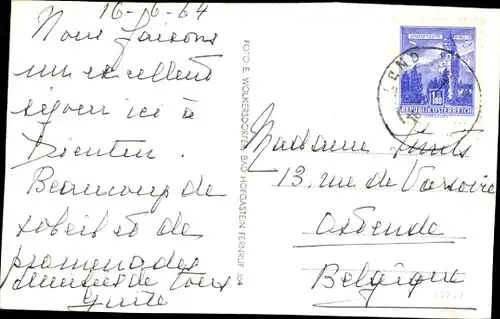 16-6-64
Nous faisons
un excellent
séjour ici à
Dienten.
Beaucoup de
soleil et de
promenades
de tous
FOTO E. WOLKERSDORFER BAD HOFGASTEIN FERNRUF 364
REPUBLIK ÖSTERREICH
LEND
Madame
13, rue de
Ostende
Belgique